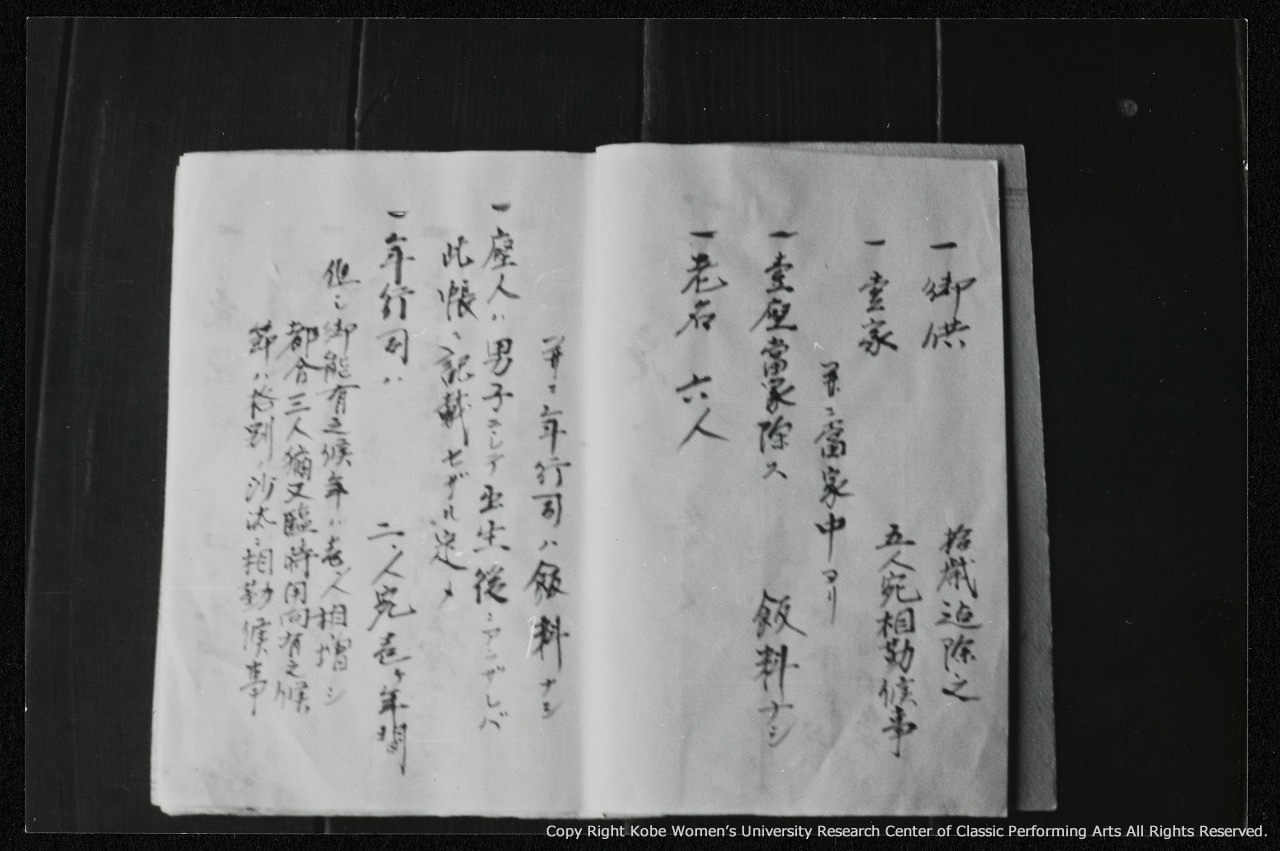 一御供　拾歳迠除之
一壹家　五人宛相勤候事
並ニ當家中ヨリ
一壹座當家除ス　飯料ナシ
一老名　六人
並ニ年行司ハ飯料ナシ
一座人ハ男子ニシテ出生後ニアラザレバ
此帳ニ記載セザル定メ
一年行司ハ　二人宛壱ヶ年間
但シ御能有之候年ハ壱人相増シ
都合三人猶又臨時用向有之候
節ハ格別ノ沙汰ニ相勤候事
Copy Right Kobe Women's University Research Center of Classic Performing Arts All Rights Reserved.